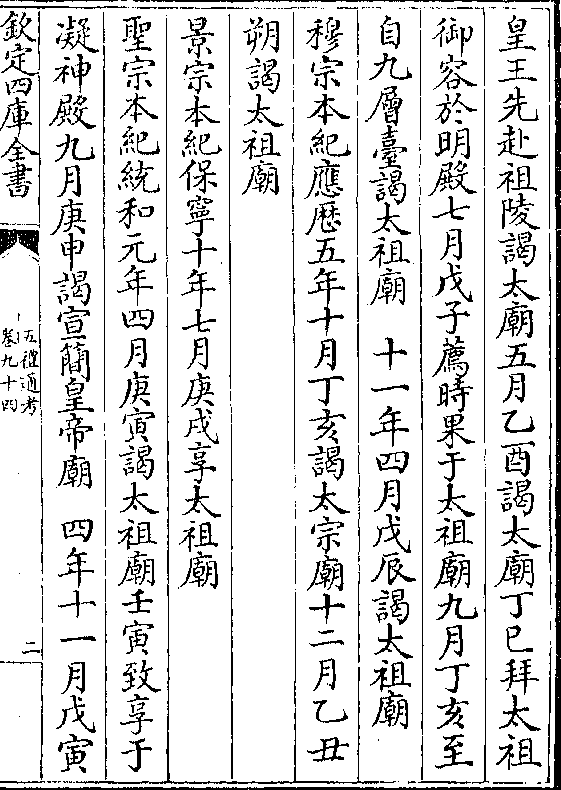 皇王先赴祖陵謁太廟五月乙酉謁太廟丁巳拜太祖
御容於明殿七月戊子薦時果于太祖廟九月丁亥至
自九層臺謁太祖廟　十一年四月戊辰謁太祖廟
穆宗本紀應厯五年十月丁亥謁太宗廟十二月乙丑
朔謁太祖廟
景宗本紀保寧十年七月庚戌享太祖廟
聖宗本紀統和元年四月庚寅謁太祖廟壬寅致享于
凝神殿九月庚申謁宣簡皇帝廟　四年十一月戊寅
欽定四庫全書
五禮通考
卷九十四
二